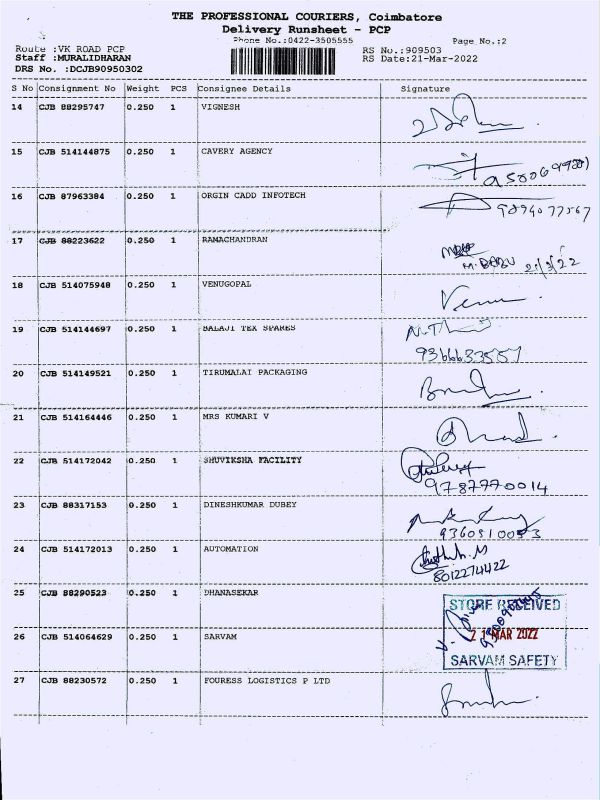 THE PROFESSIONAL COURIERS, Coimbatore
Delivery Runsheet - PCP
Phone No.:0422-3505555 Page No.:2
Route :VK ROAD PCP RS No.:909503
Staff :MURALIDHARAN RS Date:21-Mar-2022
DRS No. :DCJB90950302
S No Consignment No Weight PCS Consignee Details Signature
14 CJB 88295747 0.250 1 VIGNESH
15 CJB 514144875 0.250 1 CAVERY AGENCY
16 CJB 87963384 0.250 1 ORGIN CADD INFOTECH
9894077567
17 CJB 88223622 0.250 1 RAMACHANDRAN
M. BABU 21/3/22
18 CJB 514075948 0.250 1 VENUGOPAL
19 CJB 514144697 0.250 1 BALAJI TEX SPARES
9366633557
20 CJB 514149521 0.250 1 TIRUMALAI PACKAGING
21 CJB 514164446 0.250 1 MRS KUMARI V
22 CJB 514172042 0.250 1 SHUVIKSHA FACILITY
9787770014
23 CJB 88317153 0.250 1 DINESHKUMAR DUBEY
24 CJB 514172013 0.250 1 AUTOMATION
8012274422
25 CJB 88290523 0.250 1 DHANASEKAR
STORE RECEIVED
26 CJB 514064629 0.250 1 SARVAM
21 MAR 2022
SARVAM SAFETY
27 CJB 88230572 0.250 1 FOURESS LOGISTICS P LTD